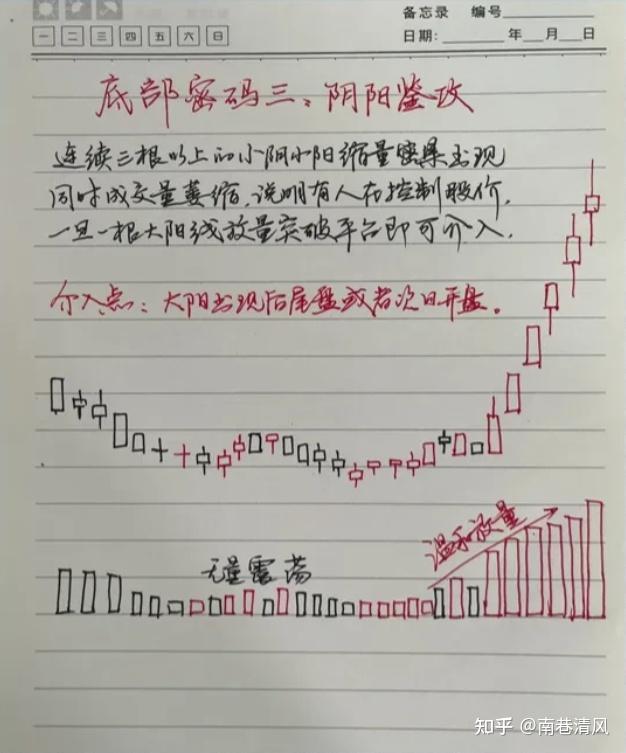 备忘录 编号
一 二 三 四 五 六 日
日期: 年 月 日
底部密码三:阴阳鉴攻
连续三根以上的小阴小阳缩量密集出现
同时成交量萎缩,说明有人在控制股价,
一旦一根大阳线放量突破平台即可介入.
介入点:大阳出现后尾盘或者次日开盘.
无量震荡
温和放量
知乎 @南巷清风